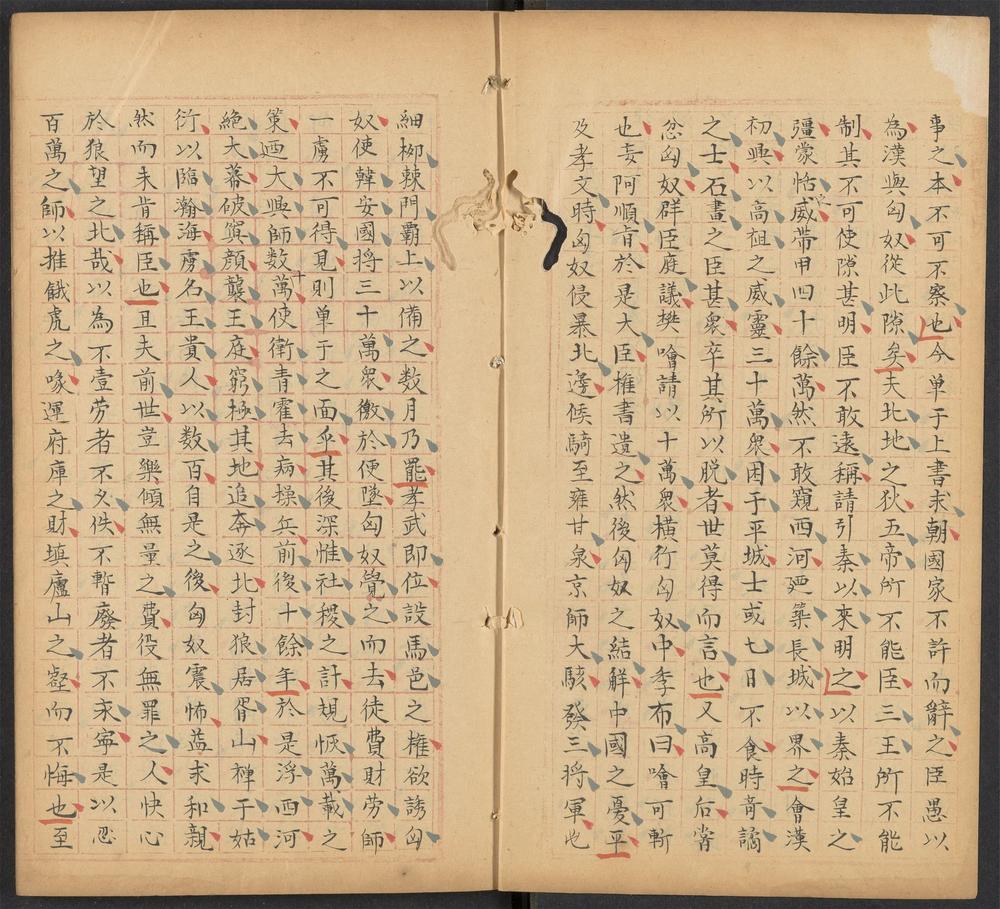 事之本不可不察也今单于上書求朝國家不許而辭之臣愚以
為漢與匈奴從此隙矣夫北地之狄五帝所不能臣三王所不能
制其不可使隙甚明臣不敢遠稱請引秦以來明之以秦始皇之
彊蒙恬威帶甲四十餘萬然不敢窺西河廼築長城以界之會漢
初興以高祖之威靈三十萬眾困于平城士或七日不食時奇譎
之士石畫之臣甚眾卒其所以脫者世莫得而言也又高皇后嘗
忿匈奴群臣庭議樊噲請以十萬眾橫行匈奴中季布曰噲可斬
也妄阿順旨於是大臣權書遺之然後匈奴之結解中國之憂平
及孝文時匈奴侵暴北邊候騎至雍甘泉京師大駭發三將軍屯
細柳棘門霸上以備之数月乃罷孝武即位設馬邑之權欲誘匈
奴使韓安國將三十萬眾徼於便墜匈奴覺之而去徒費財勞師
一虜不可得見則单于之面乎其後深惟社稷之計規恢萬載之
策廼大興師数十萬使衛青霍去病操兵前後十餘年於是浮西河
絕大幕破寘顏襲王庭窮極其地追奔逐北封狼居胥山禪于姑
衍以臨瀚海虜名王貴人以数百自是之後匈奴震怖益求和親
然而未肯稱臣也且夫前世豈樂傾無量之費役無罪之人快心
於狼望之北哉以為不壹勞者不久佚不暫費者不永寧是以忍
百萬之師以摧餓虎之喙運府庫之財填廬山之壑而不悔也至